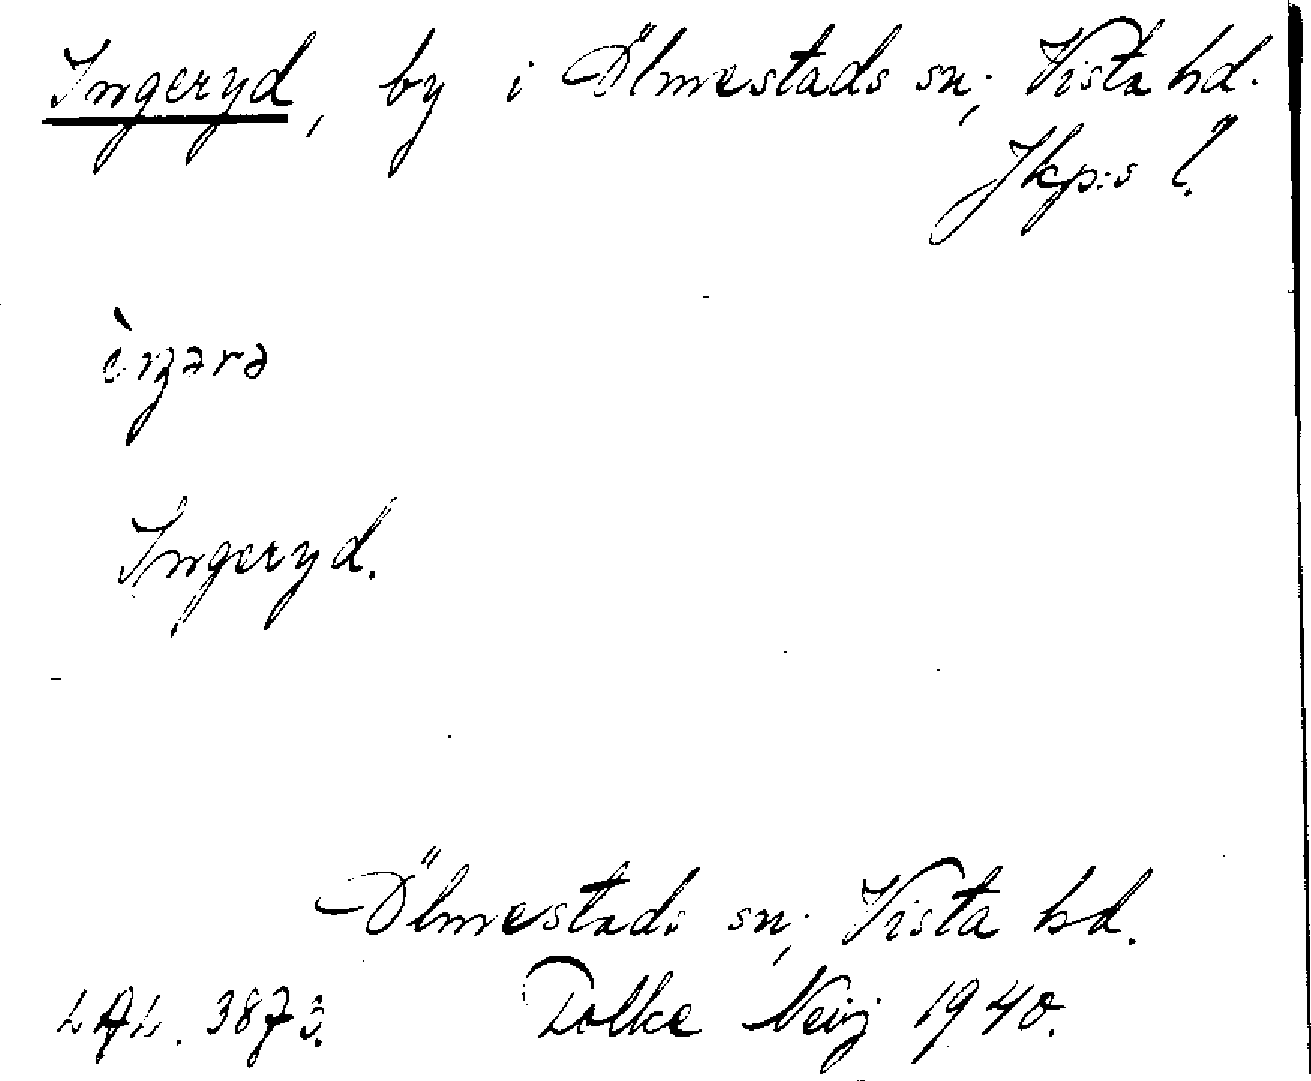 Ingeryd, by i Ölmestads sn; Vista hd.
Jkp:s l.
ìŋərə
Ingeryd.
Ölmestads sn; Vista hd.
LAL. 3873. Tolke Neij 1940.